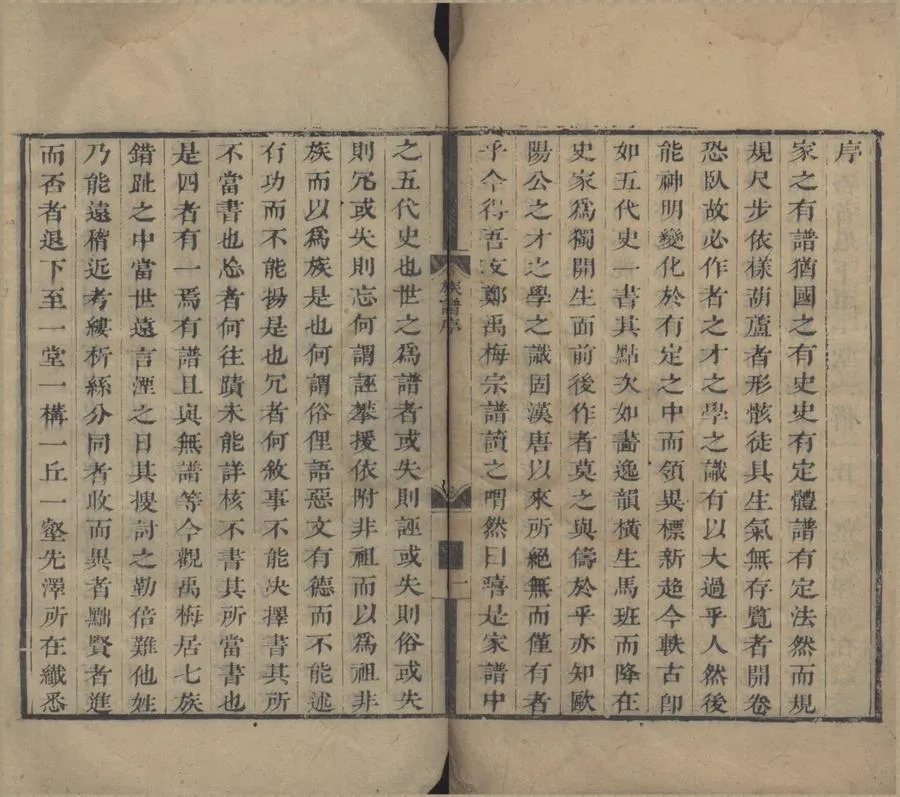 序
家之有譜猶國之有史史有定體譜有定法然而規
規尺步依樣葫蘆者形骸徒具生氣無存覧者開卷
恐臥故必作者之才之學之識有以大過乎人然後
能神明變化於有定之中而領異標新超今軼古卽
如五代史一書其點次如畵逸韻橫生馬班而降在
史家爲獨開生面前後作者莫之與儔於乎亦知歐
陽公之才之學之識固漢唐以來所絕無而僅有者
乎今得吾友鄭禹梅宗譜讀之喟然曰嘻是家譜中
族譜序
一
之五代史也世之爲譜者或失則誣或失則俗或失
則冗或失則忘何謂誣攀援依附非祖而以爲祖非
族而以爲族是也何謂俗俚語惡文有德而不能述
有功而不能揚是也冗者何敘事不能決擇書其所
不當書也忘者何往蹟未能詳核不書其所當書也
是四者有一焉有譜且與無譜等今觀禹梅居七族
錯趾之中當世遠言湮之日其搜討之勤倍難他姓
乃能遠稽近考縷析絲分同者收而異者黜賢者進
而否者退下至一堂一構一丘一壑先澤所在纖悉